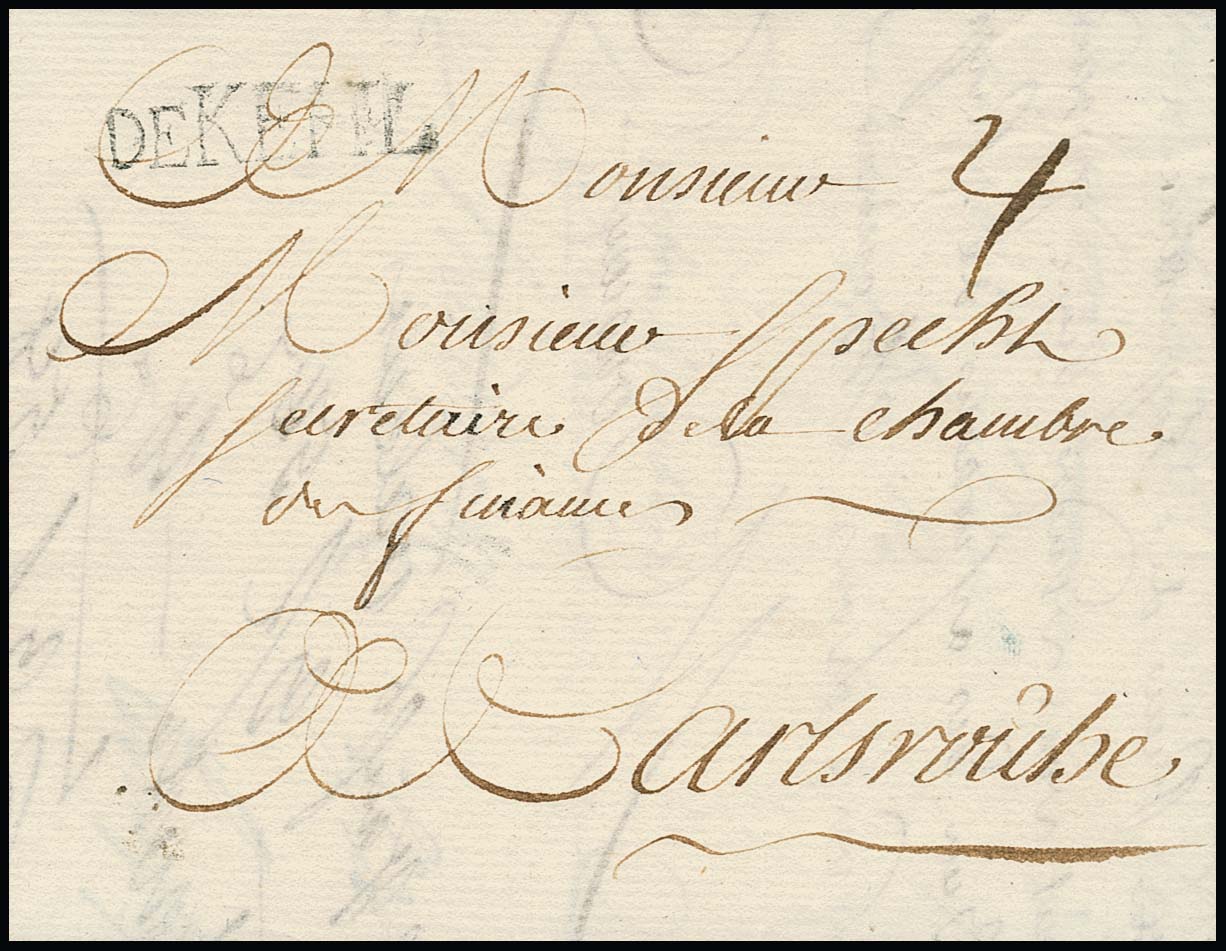 DE KEHL
A Monsieur 4
Monsieur Specht
Secretaire de la chambre
des finances
A Carlsroûhe